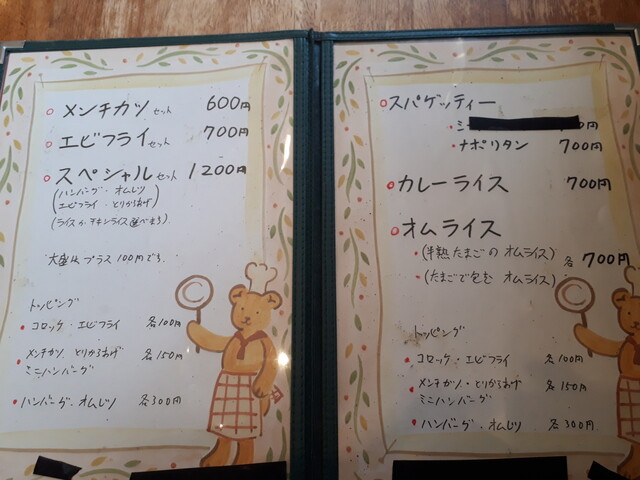 メンチカツ セット 600円
エビフライ セット 700円
スペシャル セット 1200円
(ハンバーグ・オムレツ
エビフライ・とりからあげ)
(ライス か チキンライス 選べます)
大盛は プラス 100円です。
トッピング
コロッケ・エビフライ 各100円
メンチカツ・とりからあげ 各150円
ミニハンバーグ
ハンバーグ・オムレツ 各300円
スパゲッティー
ナポリタン 700円
カレーライス 700円
オムライス
・(半熟たまごの オムライス) 各700円
・(たまごで包む オムライス)
トッピング
コロッケ・エビフライ 各100円
メンチカツ・とりからあげ 各150円
ミニハンバーグ
ハンバーグ・オムレツ 各300円